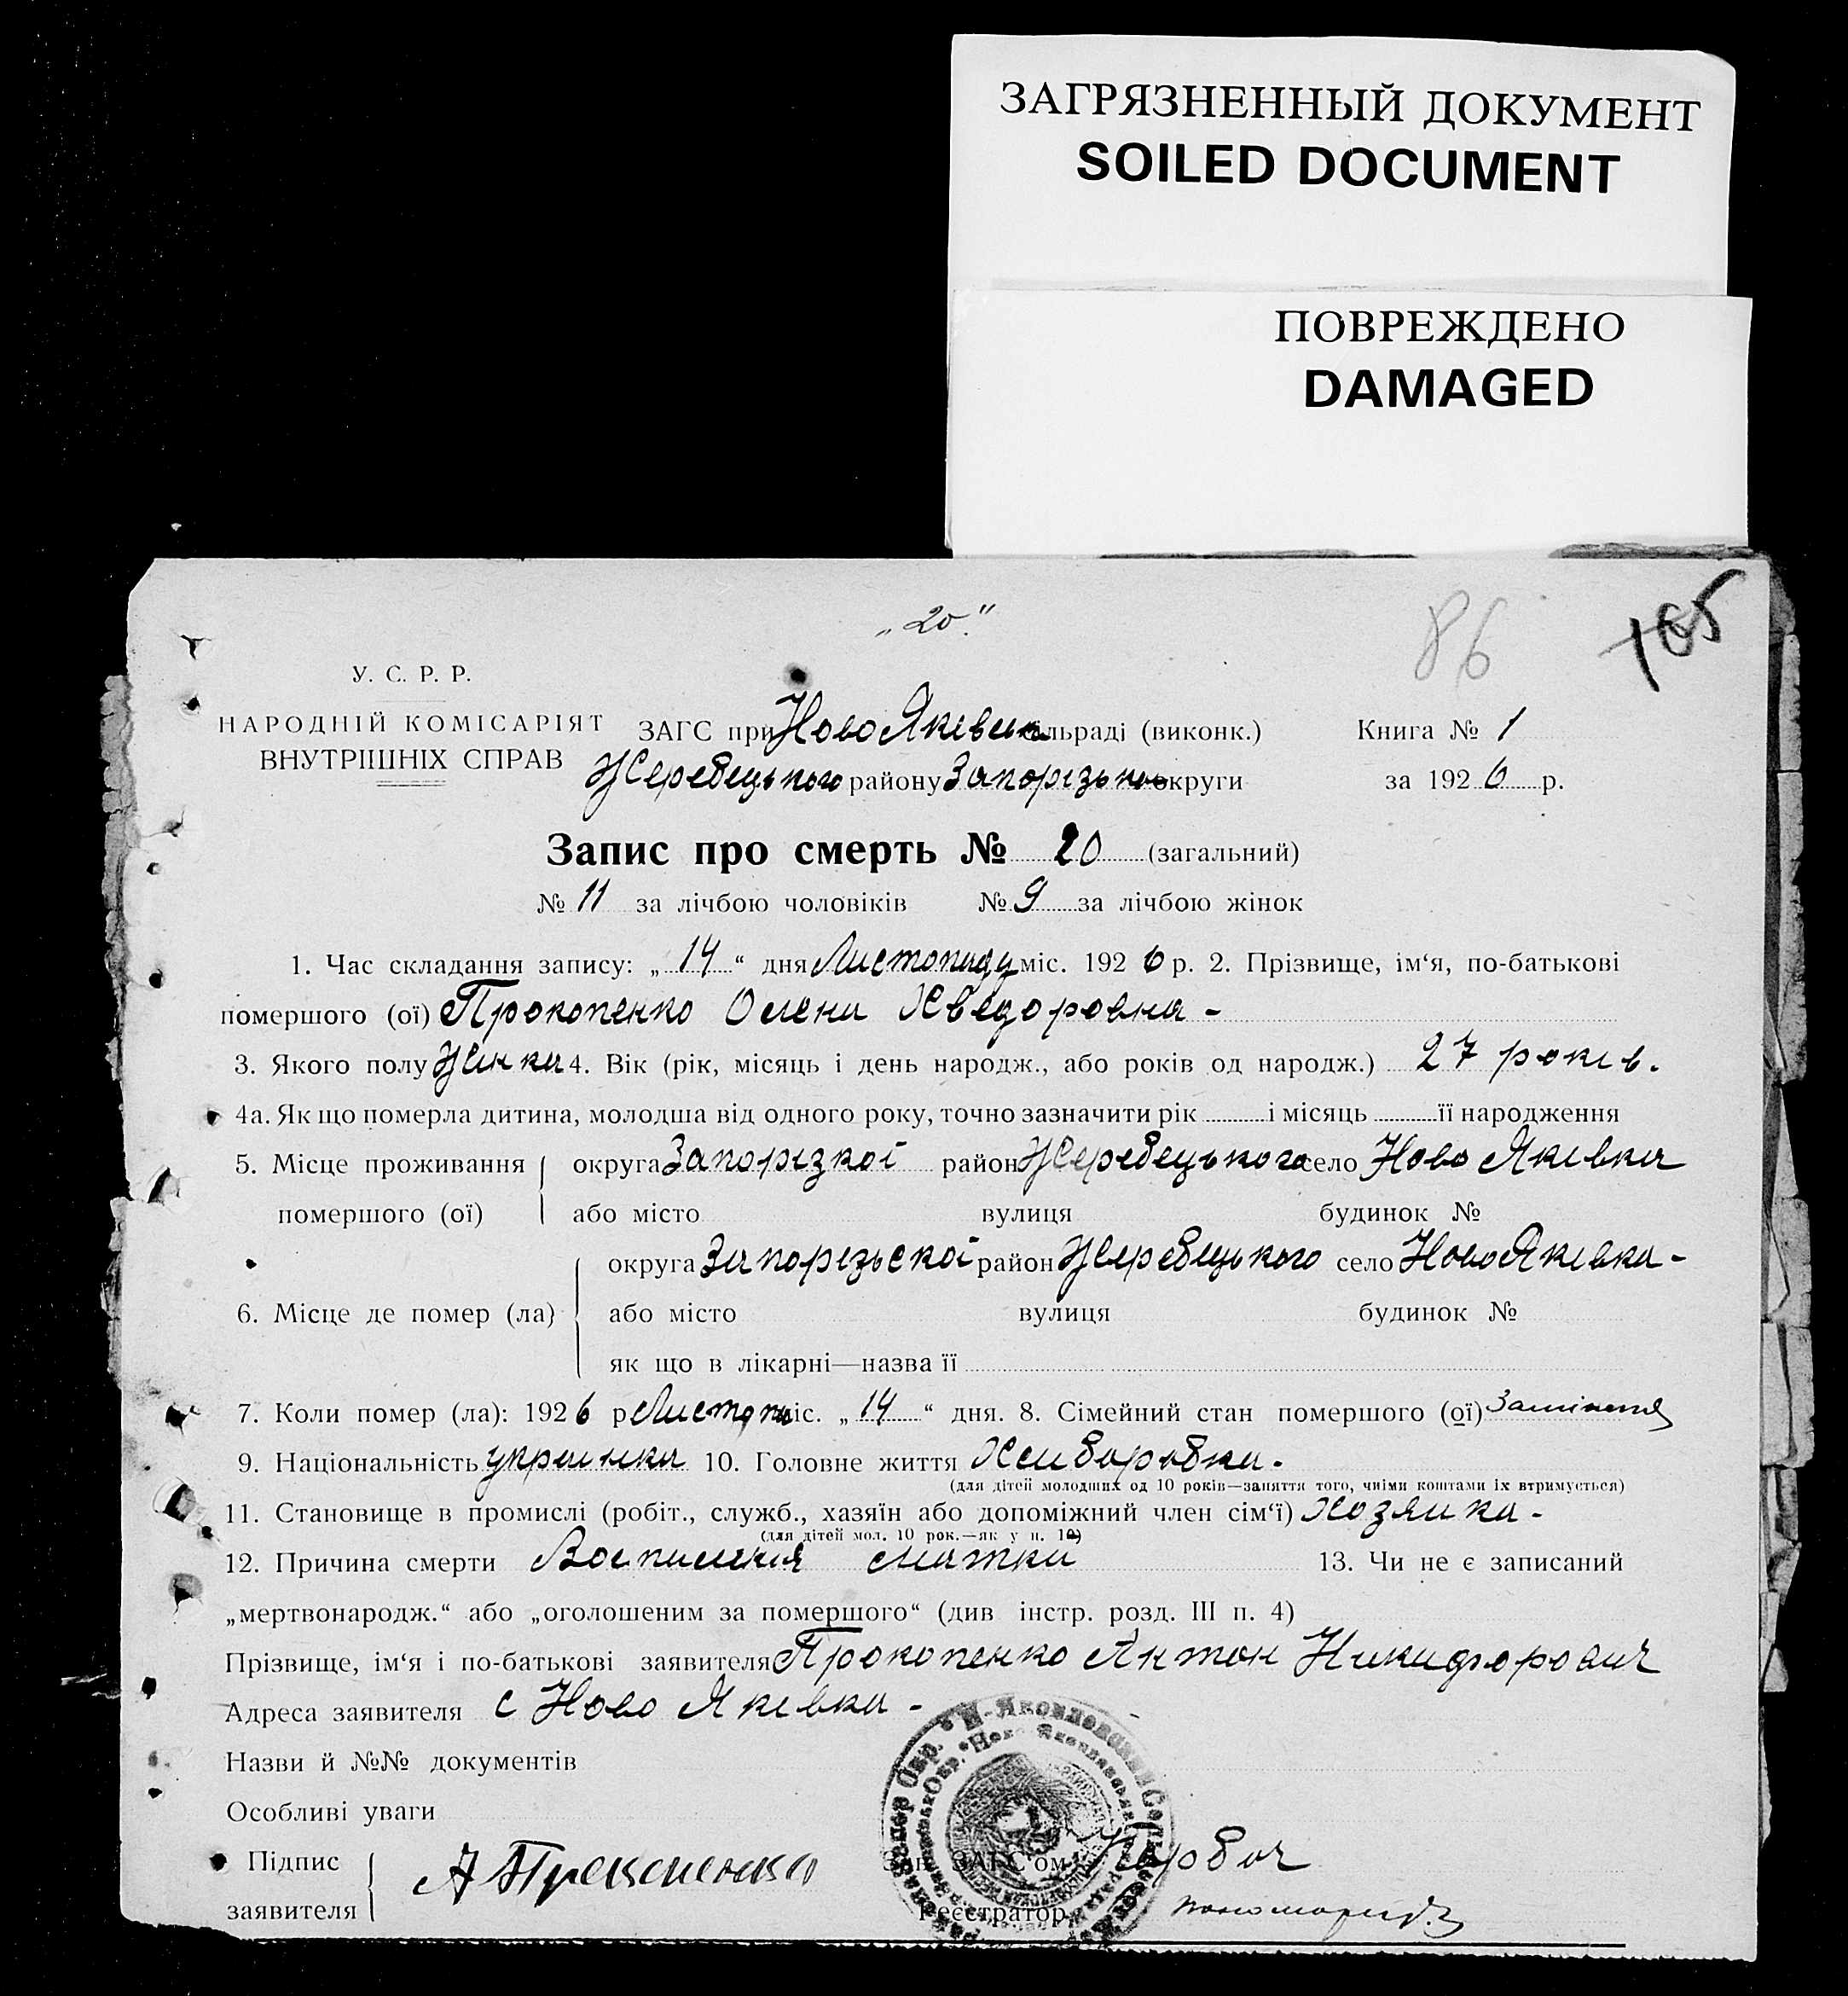 ЗАГРЯЗНЕННЫЙ ДОКУМЕНТ
SOILED DOCUMENT
ПОВРЕЖДЕНО
DAMAGED
„20“
86
165
У. С. Р. Р.
НАРОДНІЙ КОМІСАРІЯТ
ВНУТРІШНІХ СПРАВ
ЗАГС при Ново Яківськ сільраді (виконк.)
Книга № 1
Жеребецького району Запорізько округи
за 1926 р.
Запис про смерть № 20 (загальний)
№ 11 за лічбою чоловіків № 9 за лічбою жінок
1. Час складання запису: „14“ дня Листопаду міс. 1926 р. 2. Прізвище, ім‘я, по-батькові
помершого (ої) Прокопенко Олена Хведоровна -
3. Якого полу Жінка 4. Вік (рік, місяць і день народж., або років од народж.) 27 років.
4а. Як що померла дитина, молодша від одного року, точно зазначити рік і місяць її народження
5. Місце проживання помершого (ої)
округа Запорізкої район Жеребецького село Ново Яківка
або місто вулиця будинок №
6. Місце де помер (ла)
округа Запорізської район Жеребецького село Ново Яківка -
або місто вулиця будинок №
як що в лікарні—назва її
7. Коли помер (ла): 1926 р Листопа міс. „14“ дня. 8. Сімейний стан помершого (ої)
9. Національність украінка 10. Головне життя Хліборобка.
(для дітей молодших од 10 років—заняття того, чиїми коштами їх втримується)
11. Становище в промислі (робіт., служб., хазяїн або допоміжний член сім‘ї) Хозяика -
(для дітей мол. 10 рок.—як у п. 10)
12. Причина смерти Воспиления матки 13. Чи не є записаний
„мертвонародж.“ або „оголошеним за помершого“ (див інстр. розд. III п. 4)
Прізвище, ім‘я і по-батькові заявителя Прокопенко Антон Никифорович
Адреса заявителя с Ново Яківка -
Назви й №№ документів
Особливі уваги
Підпис заявителя А Прокопенко
Зав. ЗАГС‘ом
Реєстратор